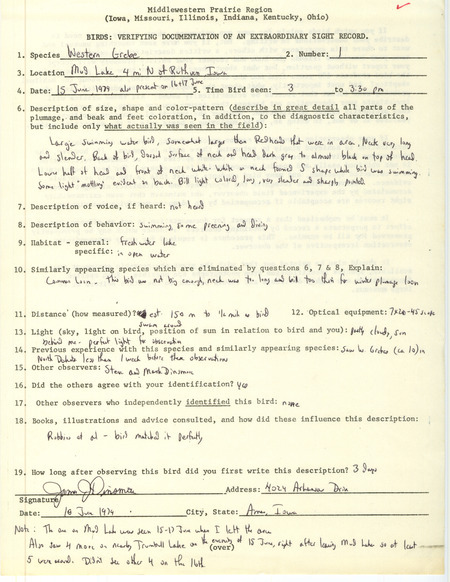 Middlewestern Prairie Region
(Iowa, Missouri, Illinois, Indiana, Kentucky, Ohio)
BIRDS: VERIFYING DOCUMENTATION OF AN EXTRAORDINARY SIGHT RECORD.
1. Species Western Grebe 2. Number: 1
3. Location Mud Lake 4 mi N of Ruthven Iowa
4. Date: 15 June 1974 also present on 16+17 June 5. Time Bird seen: 3 to 3:30 pm
6. Description of size, shape and color-pattern (describe in great detail all parts of the
plumage, and beak and feet coloration, in addition, to the diagnostic characteristics,
but include only what actually was seen in the field):
Large swimming water bird, somewhat larger than Redheads that were in area. Neck very long
and slender. Back of bird, dorsal surface of neck and head dark gray to almost black on top of head.
Lower half of head and front of neck white. White on neck formed S shape while bird was swimming.
Some light "mottling" evident on back. Bill light colored, long, very slender and sharply pointed.
7. Description of voice, if heard: not heard
8. Description of behavior: swimming, some preening and diving
9. Habitat - general: fresh water lake
specific: in open water
10. Similarly appearing species which are eliminated by questions 6, 7 & 8, Explain:
Common Loon. This bird was not big enough, neck was too long and bill too thin for winter plumage loon
11. Distance (how measured)? est. 150 m to 1/2 mile as bird 12. Optical equipment: 7x20-45x scope
swam around
13. Light (sky, light on bird, position of sun in relation to bird and you): partly cloudy, sun
behind me - perfect light for observation
14. Previous experience with this species and similarly appearing species: Saw W. Grebes (ca 10) in
North Dakota less than 1 week before these observations
15. Other observers: Steve and Mark Dinsmore
16. Did the others agree with your identification? yes
17. Other observers who independently identified this bird: none
18. Books, illustrations and advice consulted, and how did these influence this description:
Robbins et al - bird matched it perfectly
19. How long after observing this bird did you first write this description? 3 days
James J. Dinsmore Address: 4024 Arkansas Drive
Signature
Date: 18 June 1974 City, State: Ames, Iowa
(over)
Note: The one on Mud Lake was seen 15-17 June when I left the area
Also saw 4 more on nearby Trumbull Lake on the evening of 15 June, right after leaving Mud Lake so at least
5 were around. Didn't see other 4 on the 16th.